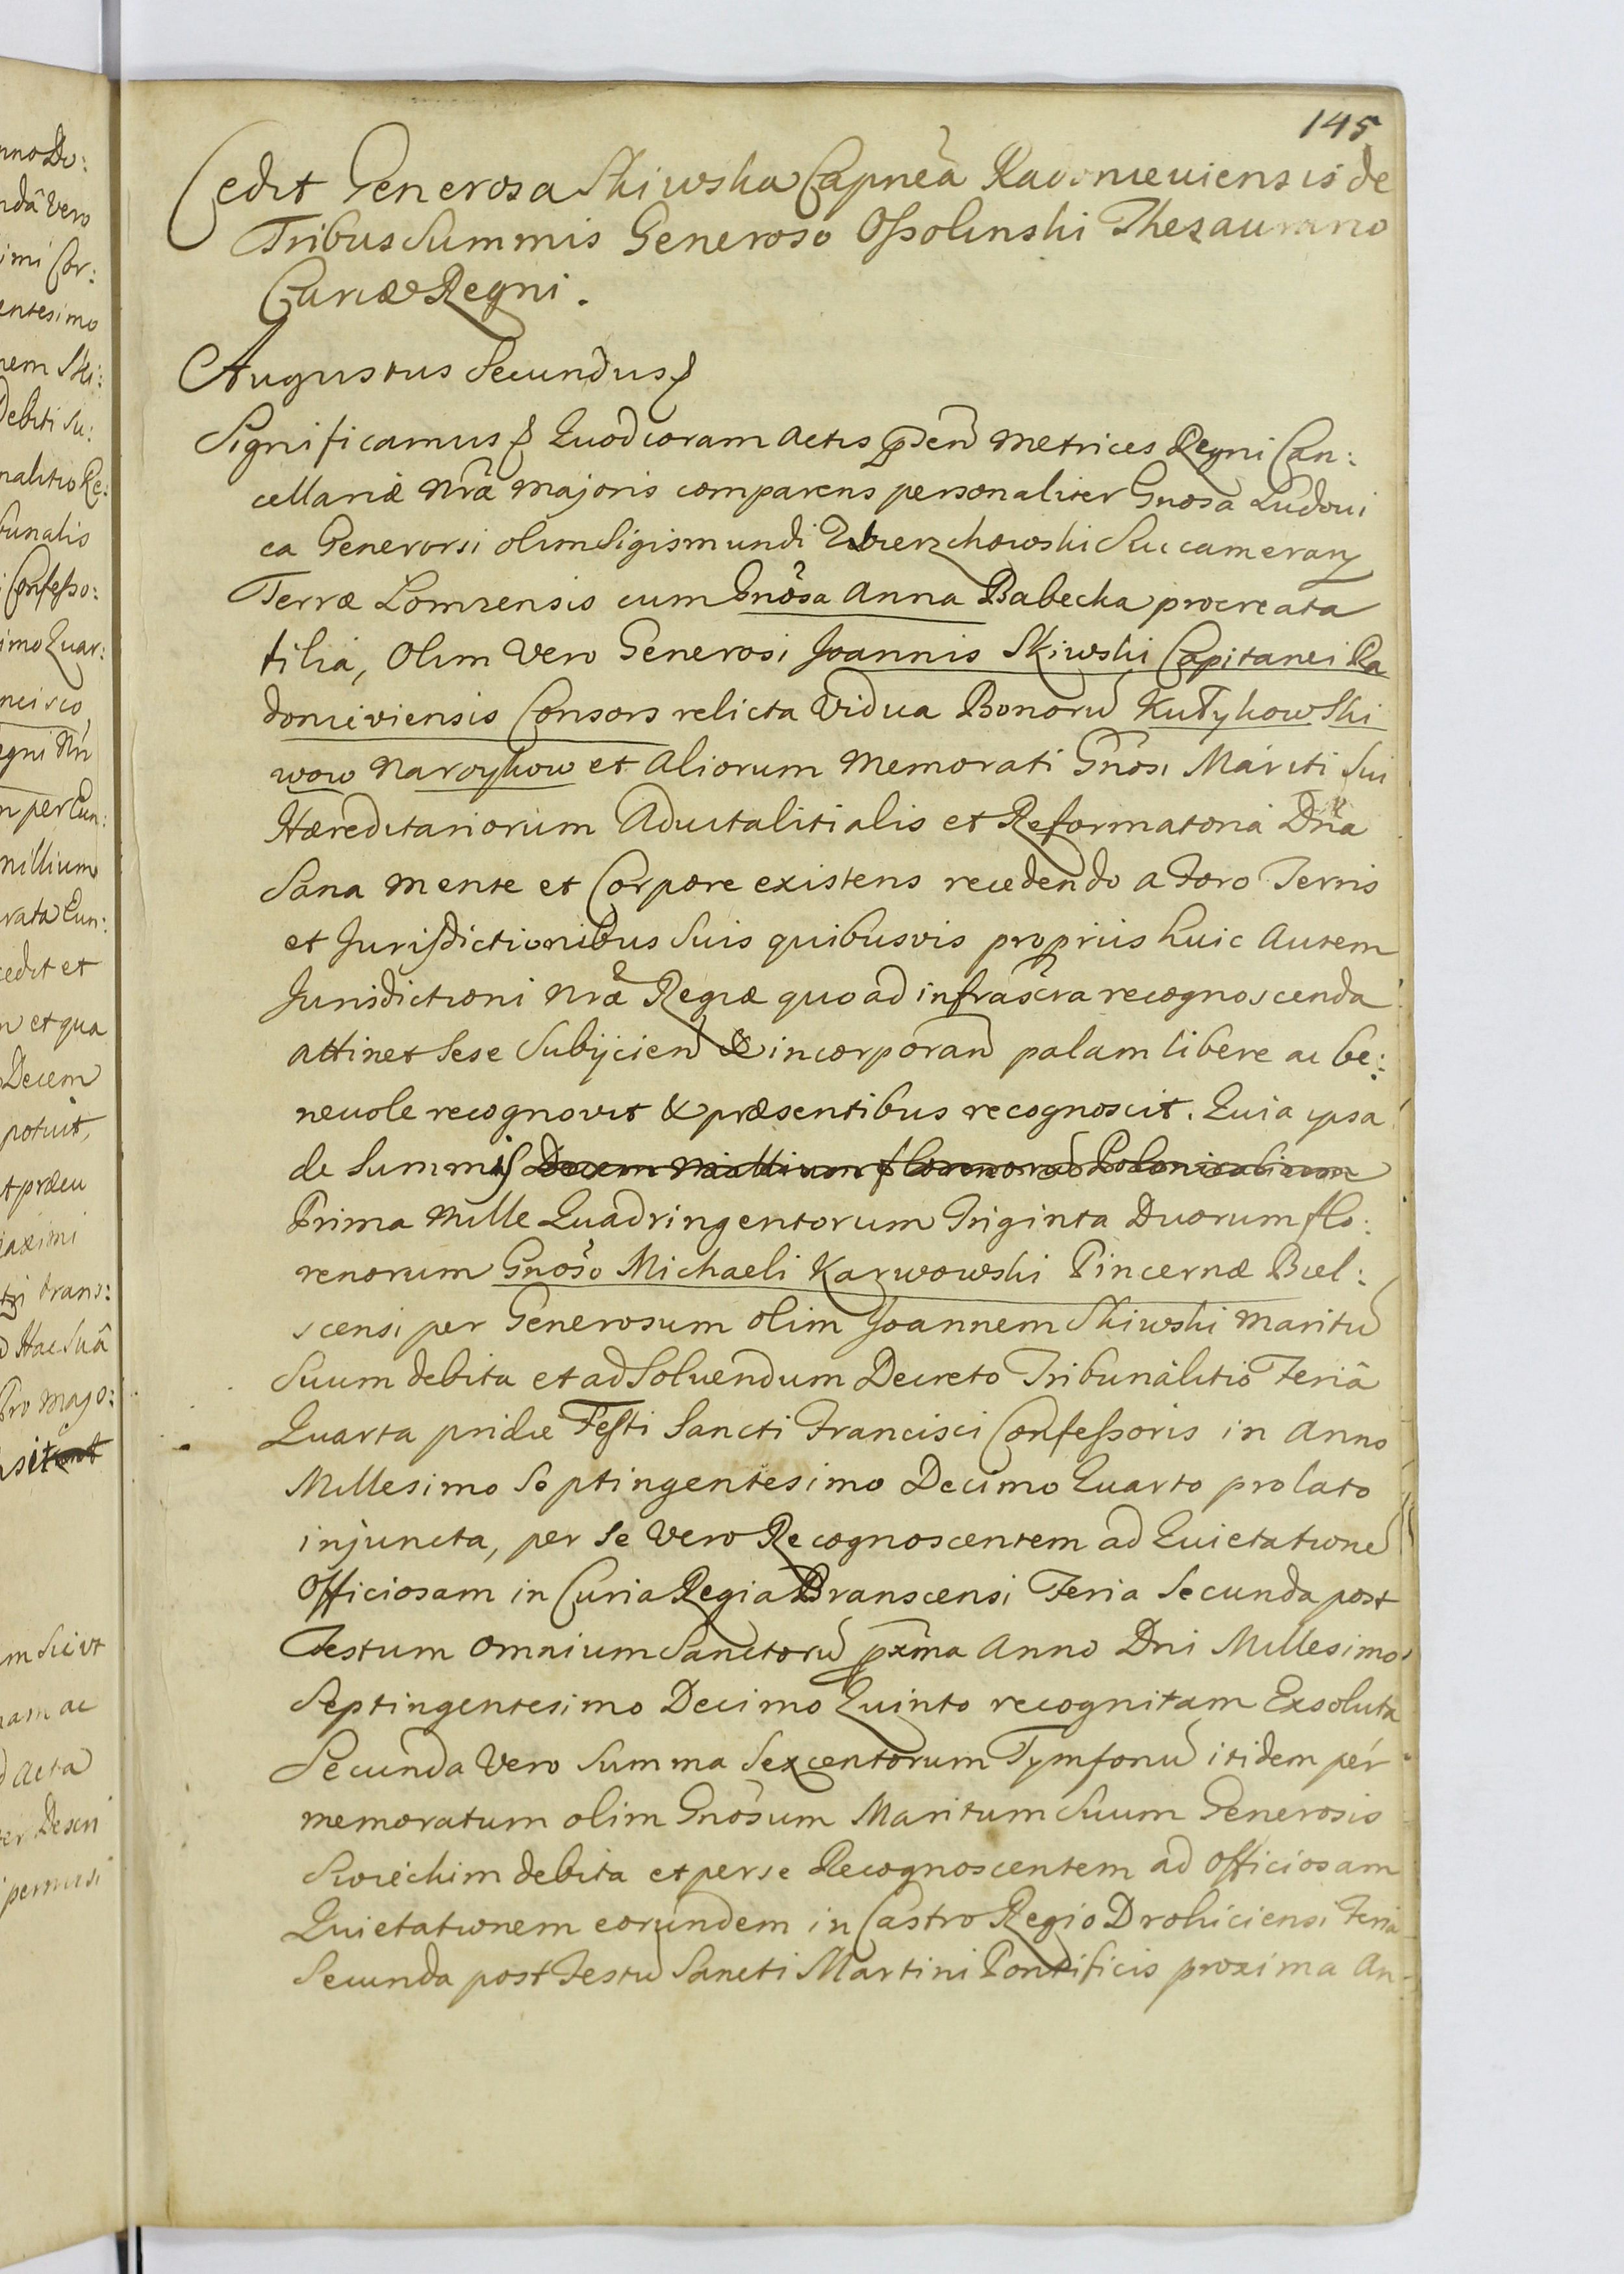 145
Cedit Generosa Skiwska Capnea Radomieviensis de
Tribus Summis Generoso Ossolinski Thezaurario
Curiæ Regni.
Augustus Secundus
Significamus Quod coram Actis Metrices Regni Can:
cellariæ Nrã Majoris comparens personaliter Gnosa Ludovi
ca Generorsi olim Sigismundi Wierzchowski Succamerarÿ
Terræ Lomzensis cum Gnosa Anna Babecka procreata
filia, Olim Vero Generosi Joannis Skiwski Capitanei Ra
domieviensis Consors relicta Vidua Bonorũ Kutyłow Ski
wow Naroykow et Aliorum Memorati Gnosi Mariti Sui
Hæreditariorum Advitalitialis et Reformatoria Dna
Sana mente et Corpore existens recedendo a Foro Terris
et Jurisdictionibus Suis quibusvis propriis huic Autem
Jurisdictioni Nrã Regiæ quo ad infrascra recognoscenda
attinet Sese Subijcien & incorporan palam libere ac be:
nevole recognovit & præsentibus recognoscit. Quia ipsa
de Summis Decem Millium florenorũ Polonicalium
Prima Mille Quadringentorum Triginta Duorum flo:
renorum Gnoso Michaeli Karwowski Pincernæ Biel:
scensi per Generosum olim Joannem Skiwski Maritũ
Suum debita et ad Solvendum Decreto Tribunalitio Feriâ
Quarta pridie Festi Sancti Francisci Confessoris in Anno
Millesimo Septingentesimo Decimo Quarto prolato
injuncta, per Se Vero Recognoscentem ad Quietationẽ
Officiosam in Curia Regia Branscensi Feria Secunda post
Festum Omnium Sanctorũ pxma Anno Dni Millesimo
Septingentesimo Decimo Quinto recognitam Exsoluta
Secunda Vero Summa Sexcentorum Tymfonũ itidem per
memoratum olim Gnosum Maritum Suum Generosis
debita et per se Recognoscentem ad Officiosam
Quietationem eorundem in Castro Regio Drohiciensi Feria
Secunda post Festũ Sancti Martini Pontificis proxima An